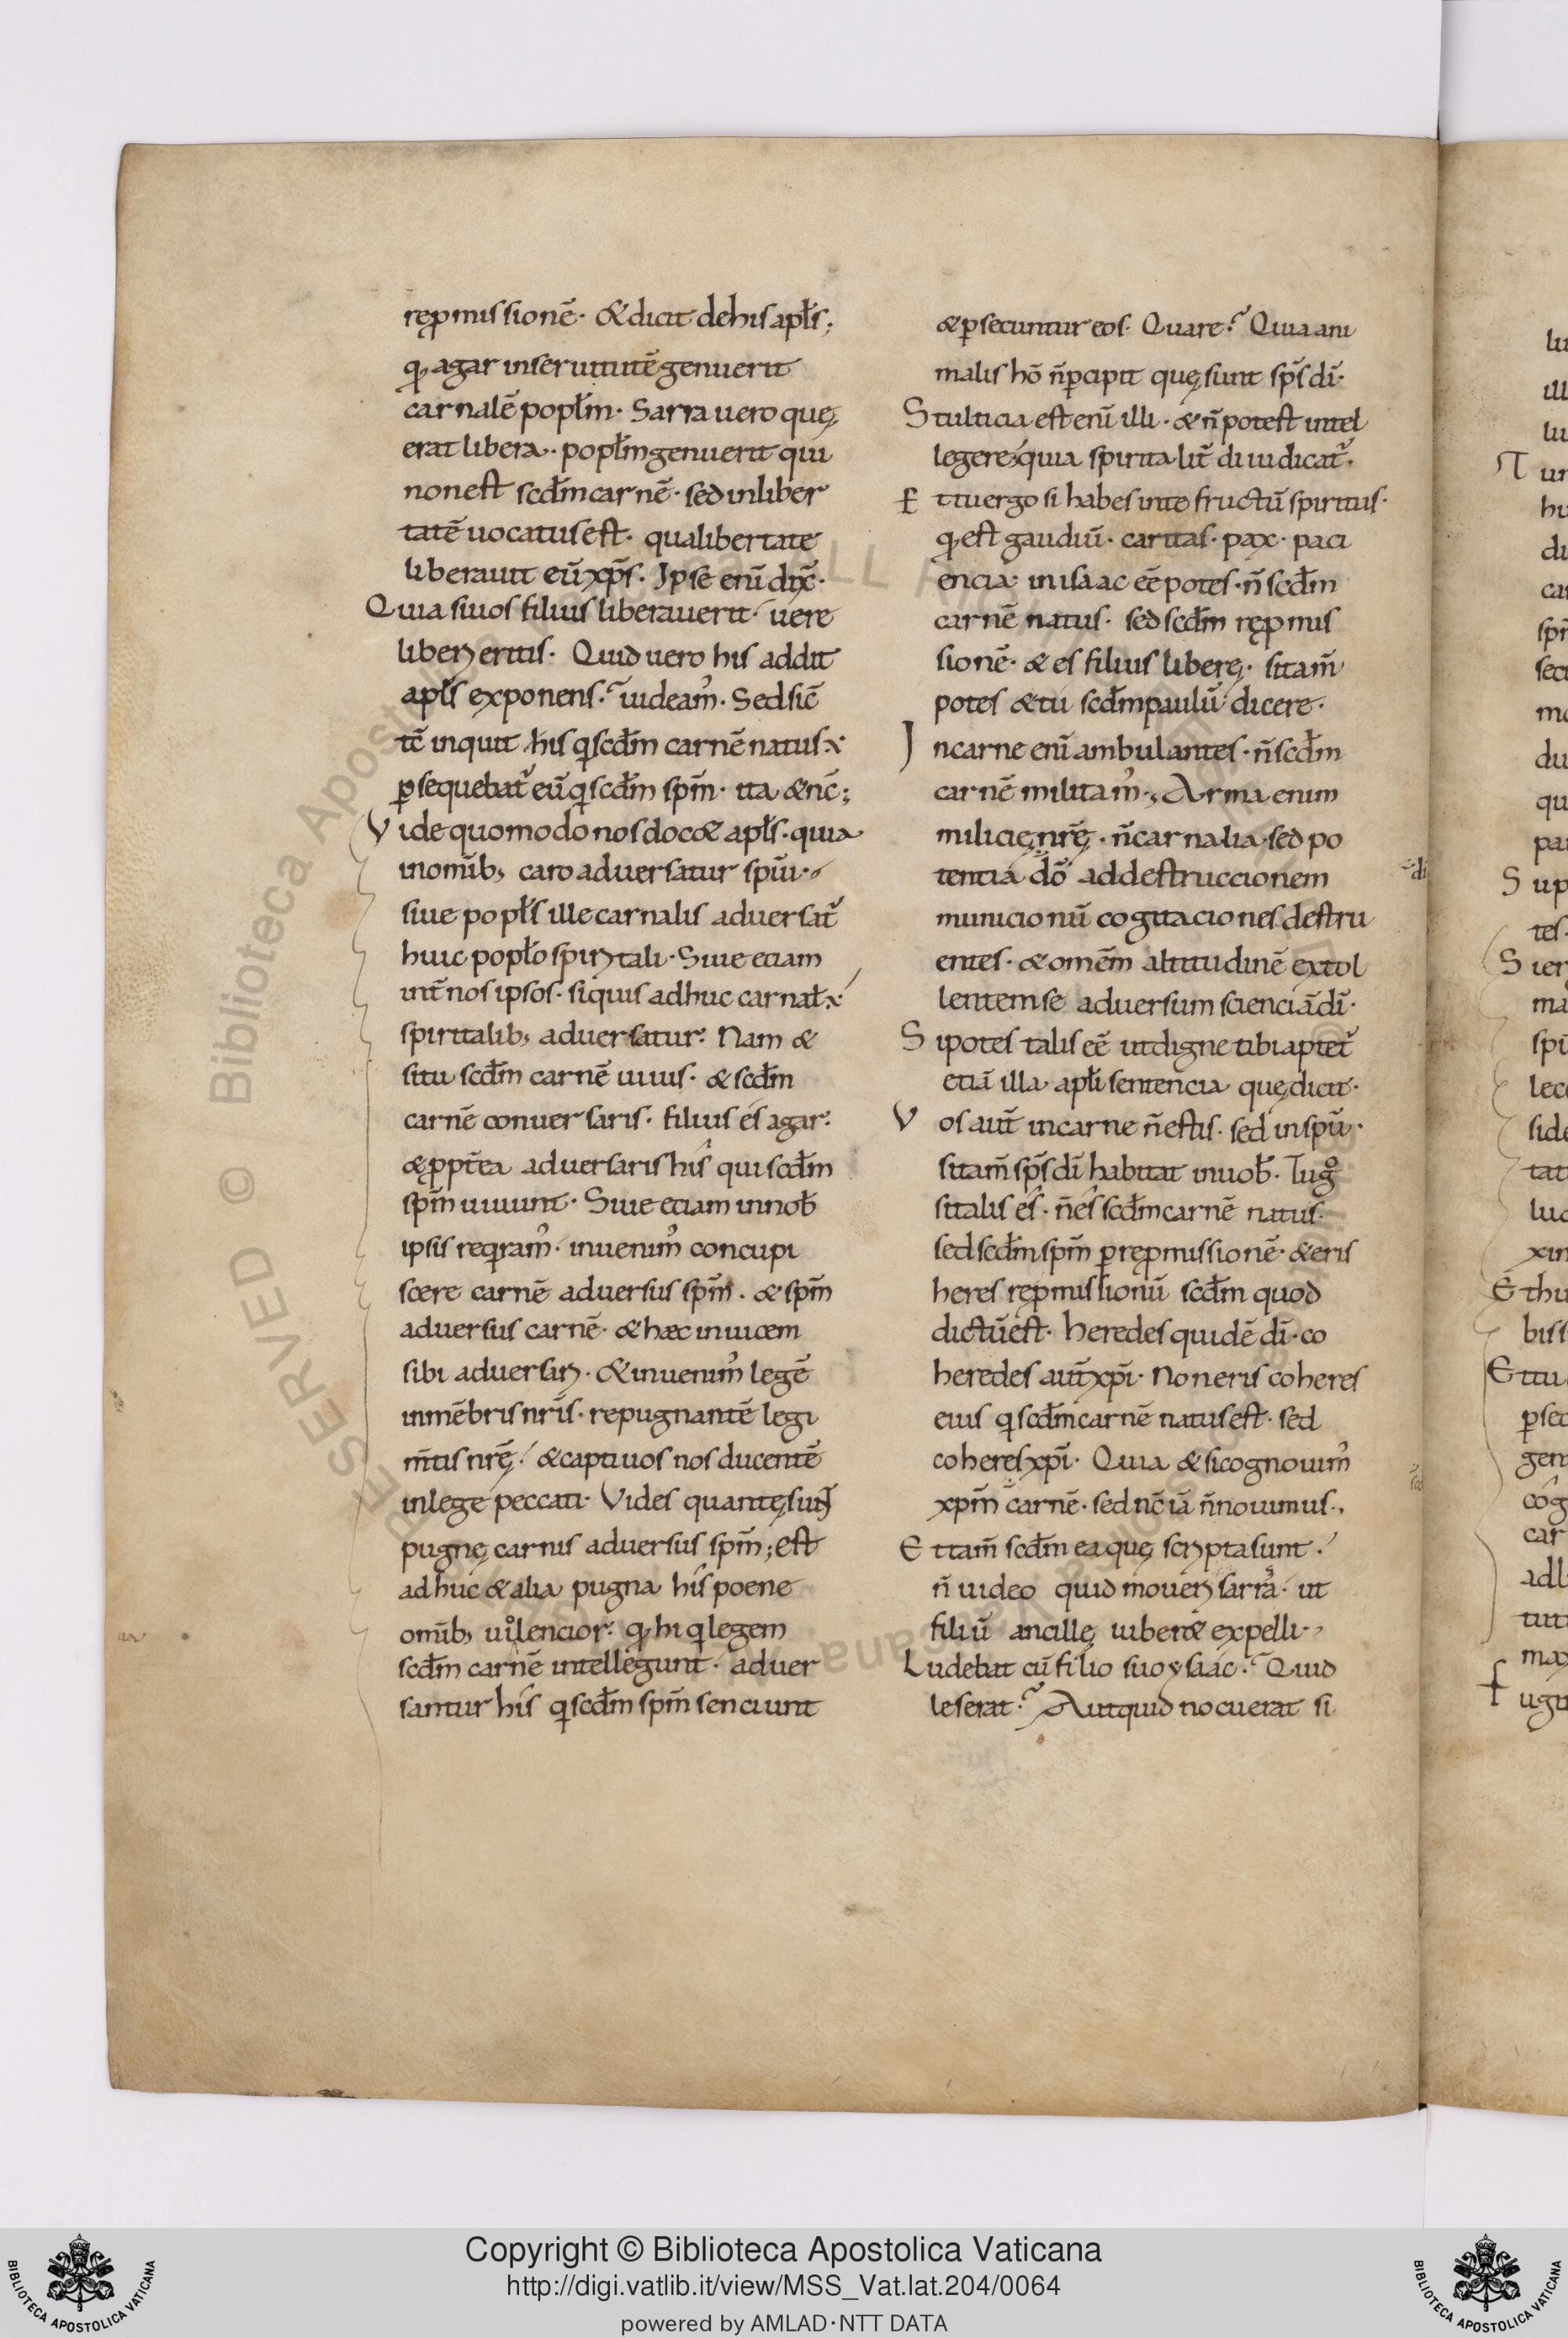 rępmissionē· & dicit dehis apłs;
qđ agar inseruitutē genuerit
carnalē popłm· Sarra uero quę
erat libera· popłm genuerit qui
non est scđm carnē· sed in liber
tatē uocatus est· qua libertate
liberauit eū xp̄s· Ipse enī dix̄·
Quia si uos filius liberauerit· uere
liberi eritis· Quid uero his addit
apłs exponens· uideam᾿· Sed sic̄
tē inquit his q scđm carnē natus·
ꝑsequebat᾿ eū q scđm spm̄· ita & nc̄;
Vide quomodo nos doc& apłs· quia
in omīb; caro aduersatur spūi·
siue popłs ille carnalis aduersat᾿
huic popło spiritali· Siue eciam
int̄ nos ipsos· si quis adhuc carnał
spiritalib; aduersatur· Nam &
si tu scđm carnē uiuis· & scđm
carnē conuersaris· filius es agar·
& ꝓpt̄ea aduersaris his qui scđm
spm̄ uiuunt· Siue eciam in nob̄
ipsis reqram᾿· inuenim᾿ concupi
scere carnē aduersus spm̄· & spm̄
aduersus carnē· & hæc inuicem
sibi aduersari· & inuenim᾿ legē
in mēbris nrīs· repugnantē legi
m̄tis nrę̄· & captiuos nos ducentē
in lege peccati· Vides quantę sunt
pugnę carnis aduersus spm̄; est
adhuc & alia pugna his poene
omīb; uiolencior· qđ hi q legem
scđm carnē intellegunt· aduer
santur his q scđm spm̄ senciunt
& ꝑsecuntur eos· Quare? Quia ani
malis hō n̄ ꝑcipit quę sunt sp̄s dī·
Stulticia est enī illi· & n̄ potest intel
legere· quia spiritalit̄ diiudicat᾿·
Et tu ergo si habes in te fructū spiritus·
qđ est gaudiū· caritas· pax· paci
encia· in isaac eē potes· n̄ scđm
carnē natus· sed scđm rępmis
sionē· & es filius liberę· si tam̄
potes & tu scđm paulū dicere·
In carne enī ambulantes· n̄ scđm
carnē militam᾿· Arma enim
milicię nrę̄· n̄ carnalia· sed po
tencia dō ad destruccionem
municionū cogitaciones destru
entes· & omēm altitudinē extol
lentem se aduersum scienciā dī·
Si potes talis eē ut digne tibi aptet᾿
etiā illa apłi sentencia quę dicit·
Vos aut̄ in carne n̄ estis· sed in spū·
si tam̄ sp̄s dī habitat in uob̄· Tu g°
si talis es· n̄ es scđm carnē natus·
sed scđm spm̄ ꝑ rępmissionē· & eris
heres rępmissionū scđm quod
dictū est· heredes quidē dī· co
heredes aut̄ xpī· Non eris coheres
eius q scđm carnē natus est· sed
coheres xpī· Quia & si cognouim᾿
xpm̄ c̄ carnē· sed nc̄ iā n̄ nouimus·
Et tam̄ scđm ea quę scripta sunt·
n̄ uideo quid mouerit sarrā· ut
filiū ancillę iuber& expelli·
Ludebat cū filio suo ysaac· Quid
leserat? Aut quid nocuerat si
Copyright © Biblioteca Apostolica Vaticana
http://digi.vatlib.it/view/MSS_Vat.lat.204/0064
powered by AMLAD·NTT DATA